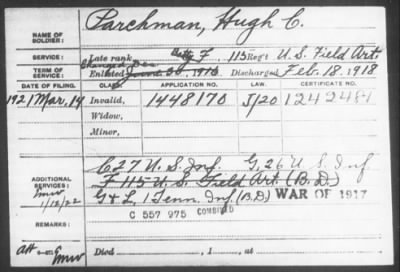 NAME OF SOLDIER: Parchman, Hugh C.
SERVICE: Late rank, Btty F, 115 Regt U.S. Field Art.
TERM OF SERVICE: Enlisted June 26, 1916 Discharged Feb. 18, 1918
DATE OF FILING. CLASS. APPLICATION NO. LAW. CERTIFICATE NO.
1921 Mar. 14 Invalid, 1448170 J/20 1242484
Widow,
Minor,
C 27 U.S. Inf. G 26 U.S. Inf
ADDITIONAL SERVICES: F 115 U.S. Field Art. (B.D.)
1/12/22 G & L, 1 Tenn. Inf. (B.D.) WAR OF 1917
C 557 975 COMBINED
REMARKS:
Died , 1 , at